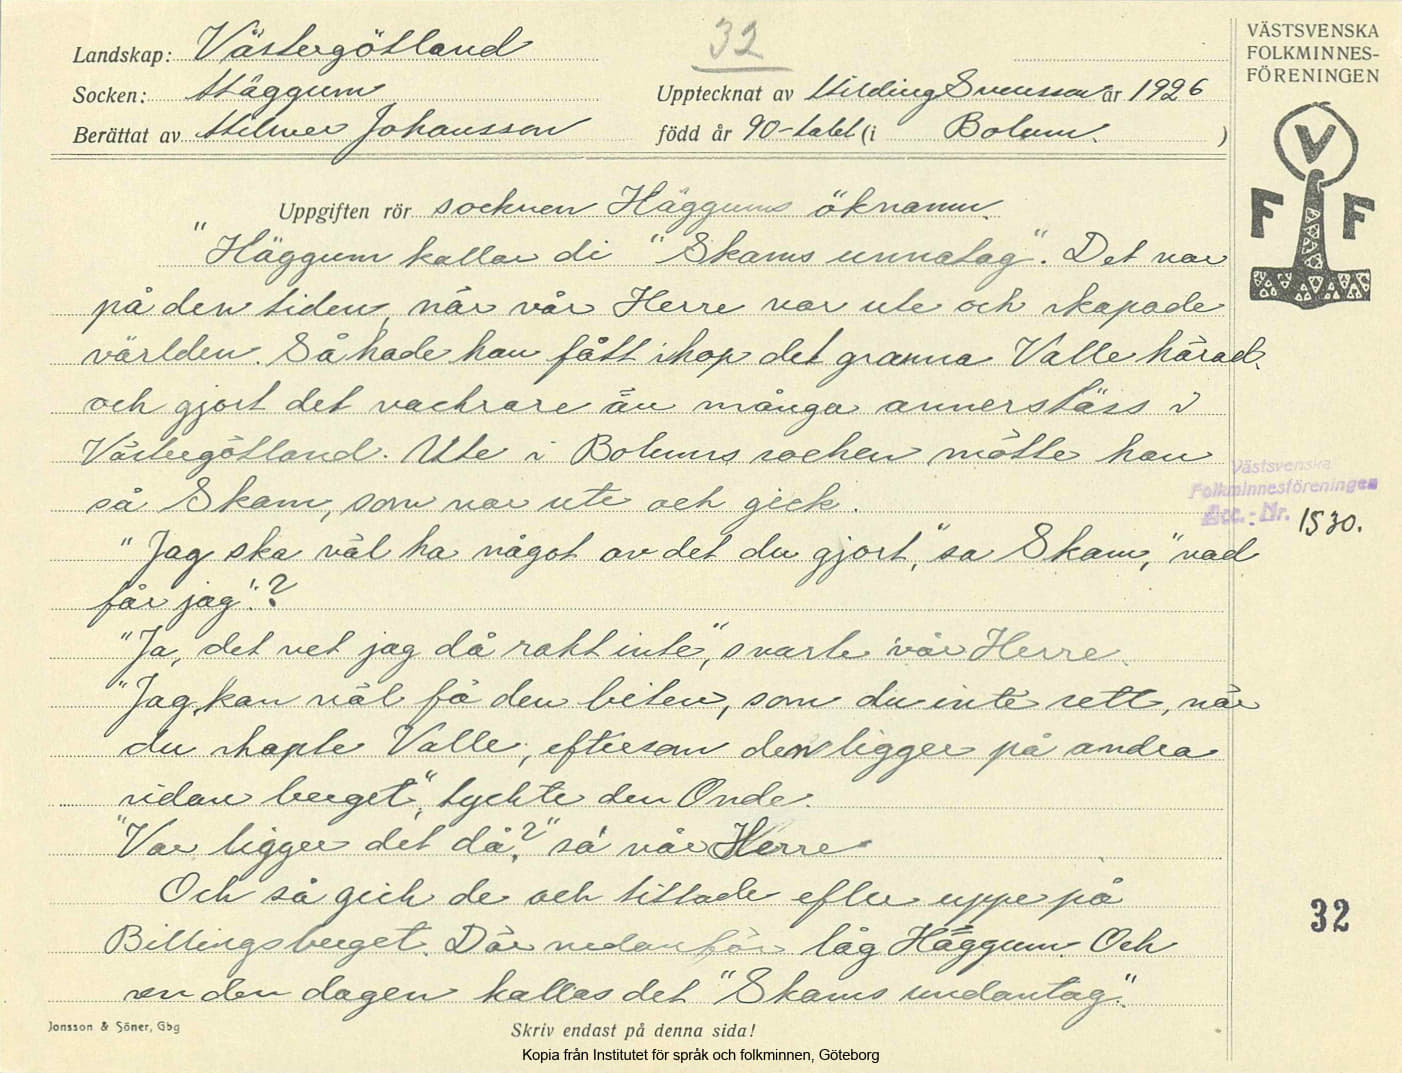 Landskap: Västergötland
32
VÄSTSVENSKA
FOLKMINNES-
FÖRENINGEN
Socken: Häggum
Upptecknat av Hilding Svensson år 1926
Berättat av Hilmer Johansson
född år 90-talet (i Bolum.)
V
F F
Uppgiften rör socknen Häggums öknamn.
"Häggum kallar di "Skams unnatag". Det var
på den tiden, när vår Herre var ute och skapade
världen. Så hade han fått ihop det granna Valle härad,
och gjort det vackrare än många annerstäss i
Västergötland. Ute i Bolums socken mötte han
så Skam, som var ute och gick.
"Jag ska väl ha något av det du gjort," sa Skam, "vad
får jag"?
"Ja, det vet jag då rakt inte", svarte vår Herre.
"Jag kan väl få den biten, som du inte sett, när
du skapte Valle, eftersom den ligger på andra
sidan berget", tyckte den Onde.
"Var ligger det då?" sa vår Herre
Och så gick de och tittade efter uppe på
Billingsberget. Där nedanför låg Häggum. Och
sen den dagen kallas det "Skams undantag".
Västsvenska
Folkminnesföreningen
Acc.-Nr. 1530.
32
Jonsson & Söner, Gbg
Skriv endast på denna sida!
Kopia från Institutet för språk och folkminnen, Göteborg